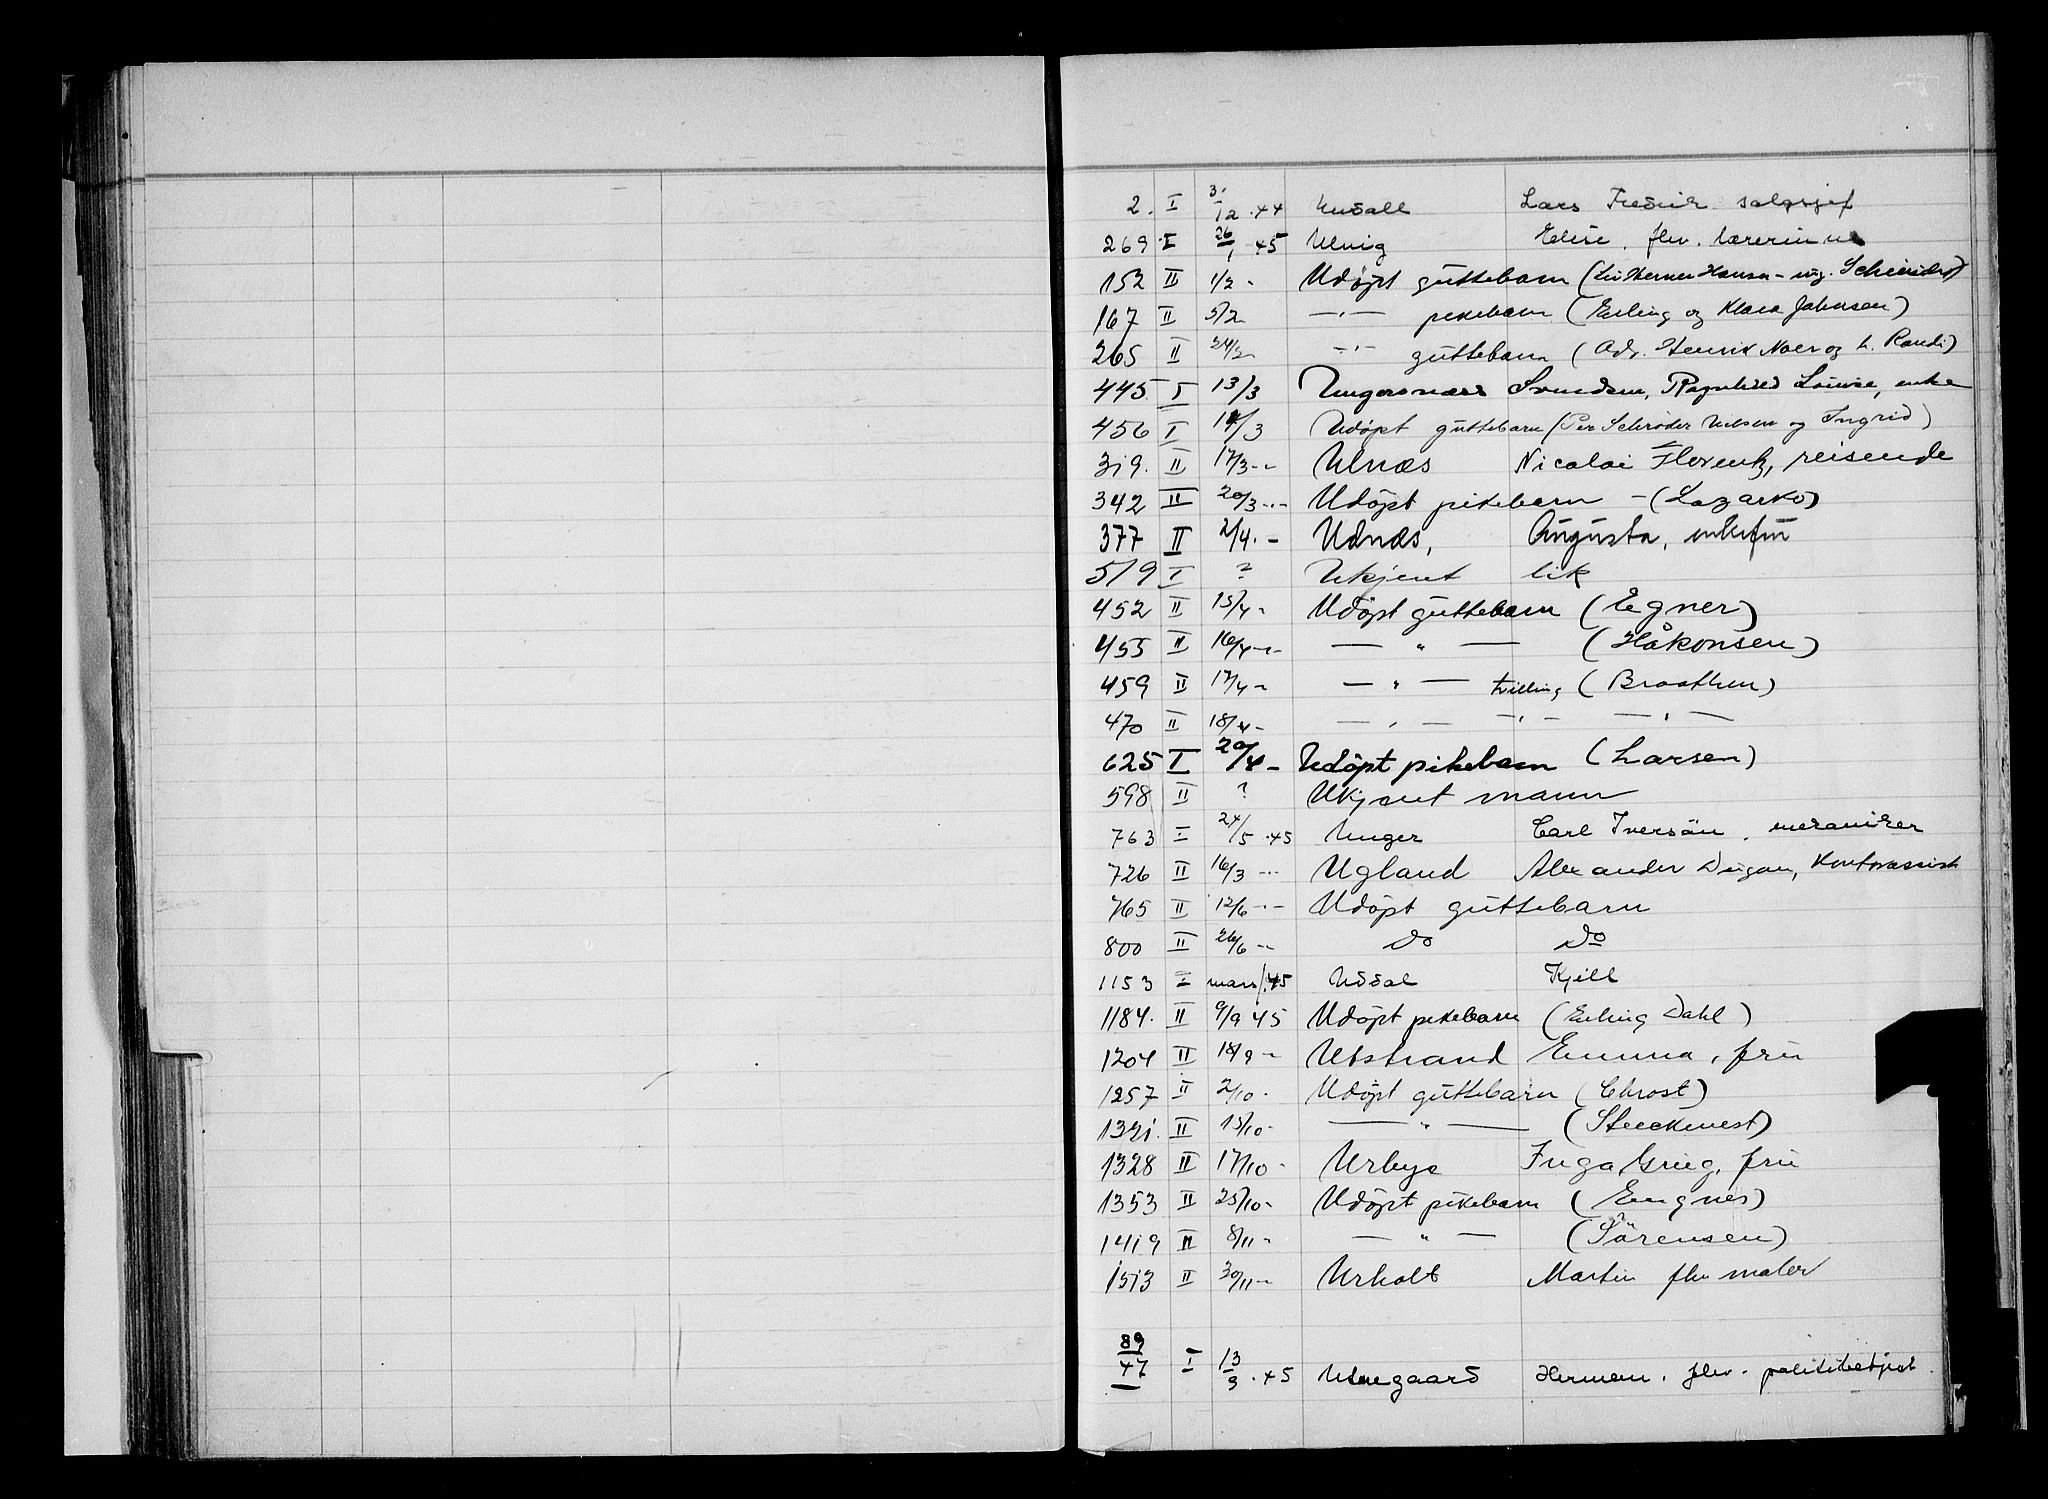 2. I 3/12 .44 Lars Fredrik salgssjef
269 I 26/1 45 Ulvig Elise, fhv. lærerinne
152 II 1/2 - Udöpt guttebarn
167 II 5/2 —"— pikebarn (Erling og Klara Johnsen)
265 II 24/2 —"— guttebarn (Adv. Henrik og h. Randi)
445 I 13/3 Svendsen, Ragnhild Louise, enke
456 I 14/3 Udöpt guttebarn (Per Schrøder Nilsen og Ingrid)
319. II 17/3 -"- Ulnæs Nicolai Florentz, reisende
342 II 20/3 -"- Udöpt pikebarn - (Lazarko)
377 II 2/4. - Udnæs, Augusta, enkefru
519 I ? Ukjent lik
452 II 15/4 - Udöpt guttebarn (Egner)
455 II 16/4 -"- — " — (Håkonsen)
459 II 17/4 - — " — tvilling (Braathen)
470 II 18/4 - — " — -"- — " —
625 I 20/4 - Udöpt pikebarn (Larsen)
598 II ? Ukjent mann
763 I 24/5 .45 Unger Carl Iversön, mekaniker
726 II 16/3 -"- Ugland Alexander Dugan, Kontorassist
765 II 12/6 -"- Udöpt guttebarn
800 II 26/6 -"- do do
1153 I mars/.45 Uddal Kjell
1184. II 9/9 45 Udöpt pikebarn (Erling Dahl)
1204 II 18/9 - Utstrand Emma, fru
1257 II 2/10 - Udöpt guttebarn (Chrost)
1321. II 15/10 - — " — (Steckmest)
1328 II 17/10 - Urbye Inga Grieg, fru
1353 II 25/10 - Udöpt pikebarn (Engnes)
1419 II 8/11 - — " — (Sörensen)
1513 II 30/11 - Urholt Martin fhv maler
89/47 I 13/3 .45 Herman, fhv. politibetjent.